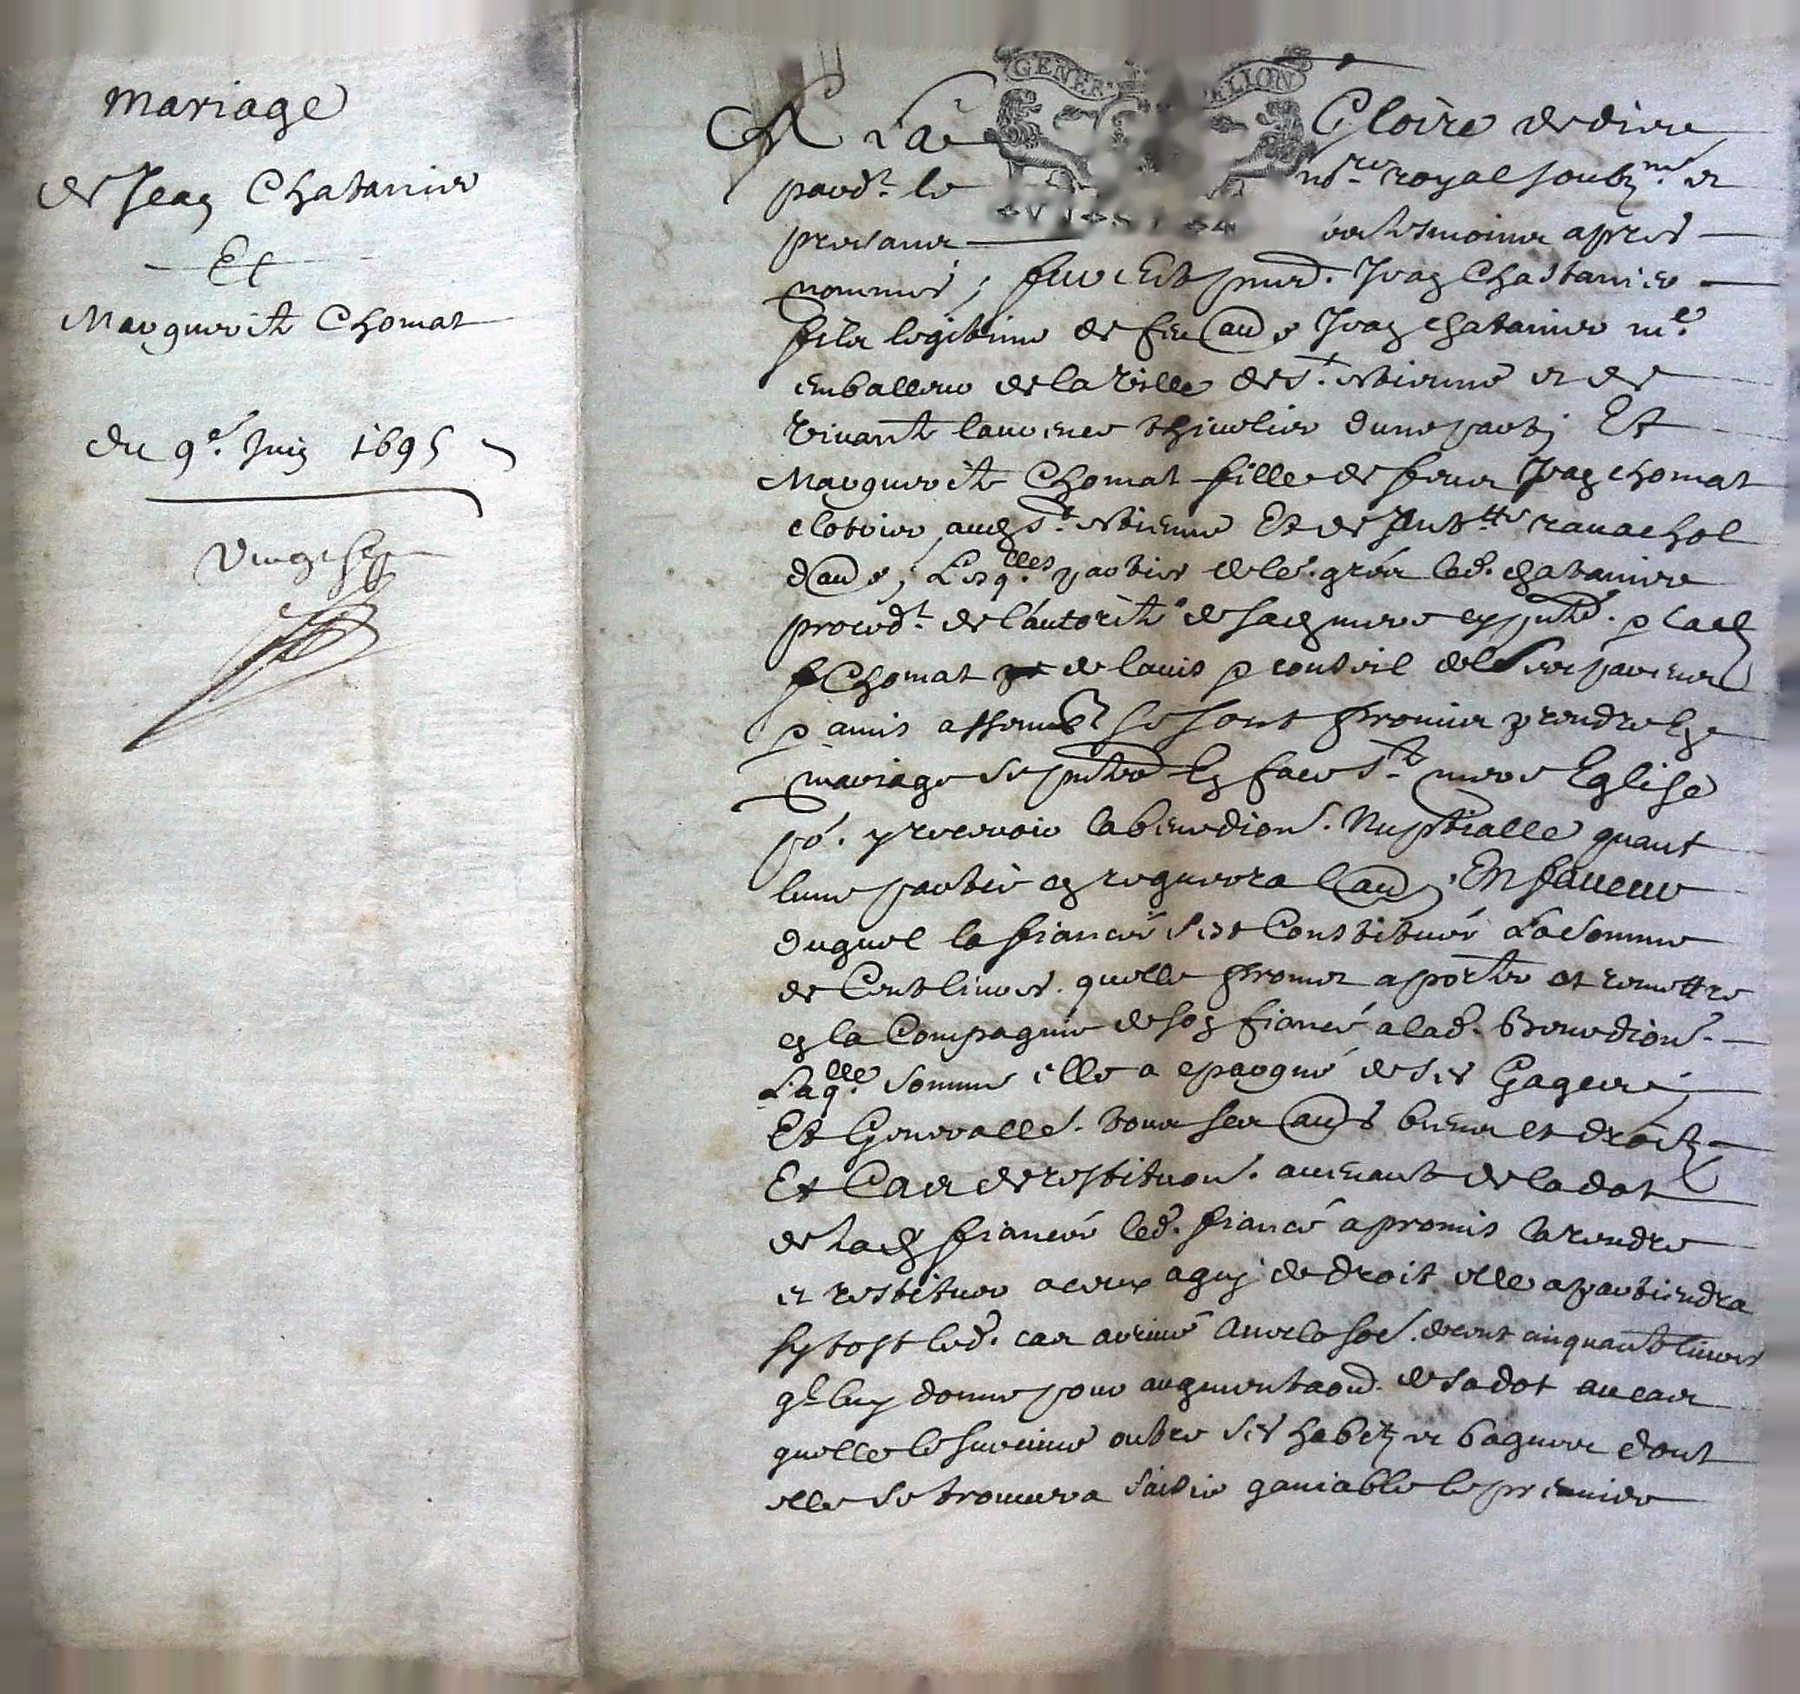 mariage
de Jean Chatanier
Et
Marguerite Chomat
du 9e. Juin 1695
Vingt sept
GENER LION
A La Gloire de dieu
pardt. le nore. royal soubzné. et
presance tesmoins apres
nommés, fut Est pnt. Jean Chastanier
fils legitime de feu aud Jean chatanier me.
emballeur de la Ville de St. Estienne et de
vivante laurence thivelier d'une party Et
Marguerite Chomat fille de feux Jean chomat
clotrier aud St. Estienne Et de Ant.tte ravachol
Lesq.elles parties de le. grés led. chatanier
proced.t de l'autorité de sad mere cy pnte. & lad
Chomat de lavis & conseil de leurs parens
& amis assemblés se sont promis prendre En
mariage se pnter En face Ste mere Eglise
po. y recevoir la benedion. Nuptialle quant
lune partie en requerra lau. En faveur
duquel la fiancée s'est Constituée La somme
de Cent livres. quelle promet aporter et remettre
en la Compagnie de son fiancé a lad. Benedion.
Laq.elle somme elle a epargné de ses Gages
Et Generalle. tous ses au. biens et droits
Et Cas de restituon. avenant de la dot
de lad fiancée led. fiancé a promis la rendre
et restituer a ceux a quy de droit elle apartiendra
sy tost led. cas arrivé Avec la so.e de cent cinquante livres
q'l luy donne pour augmentaon. de sa dot au cas
quelle le survive outre ses habits et bagues dont
elle se trouvera saisie ganiable le premier